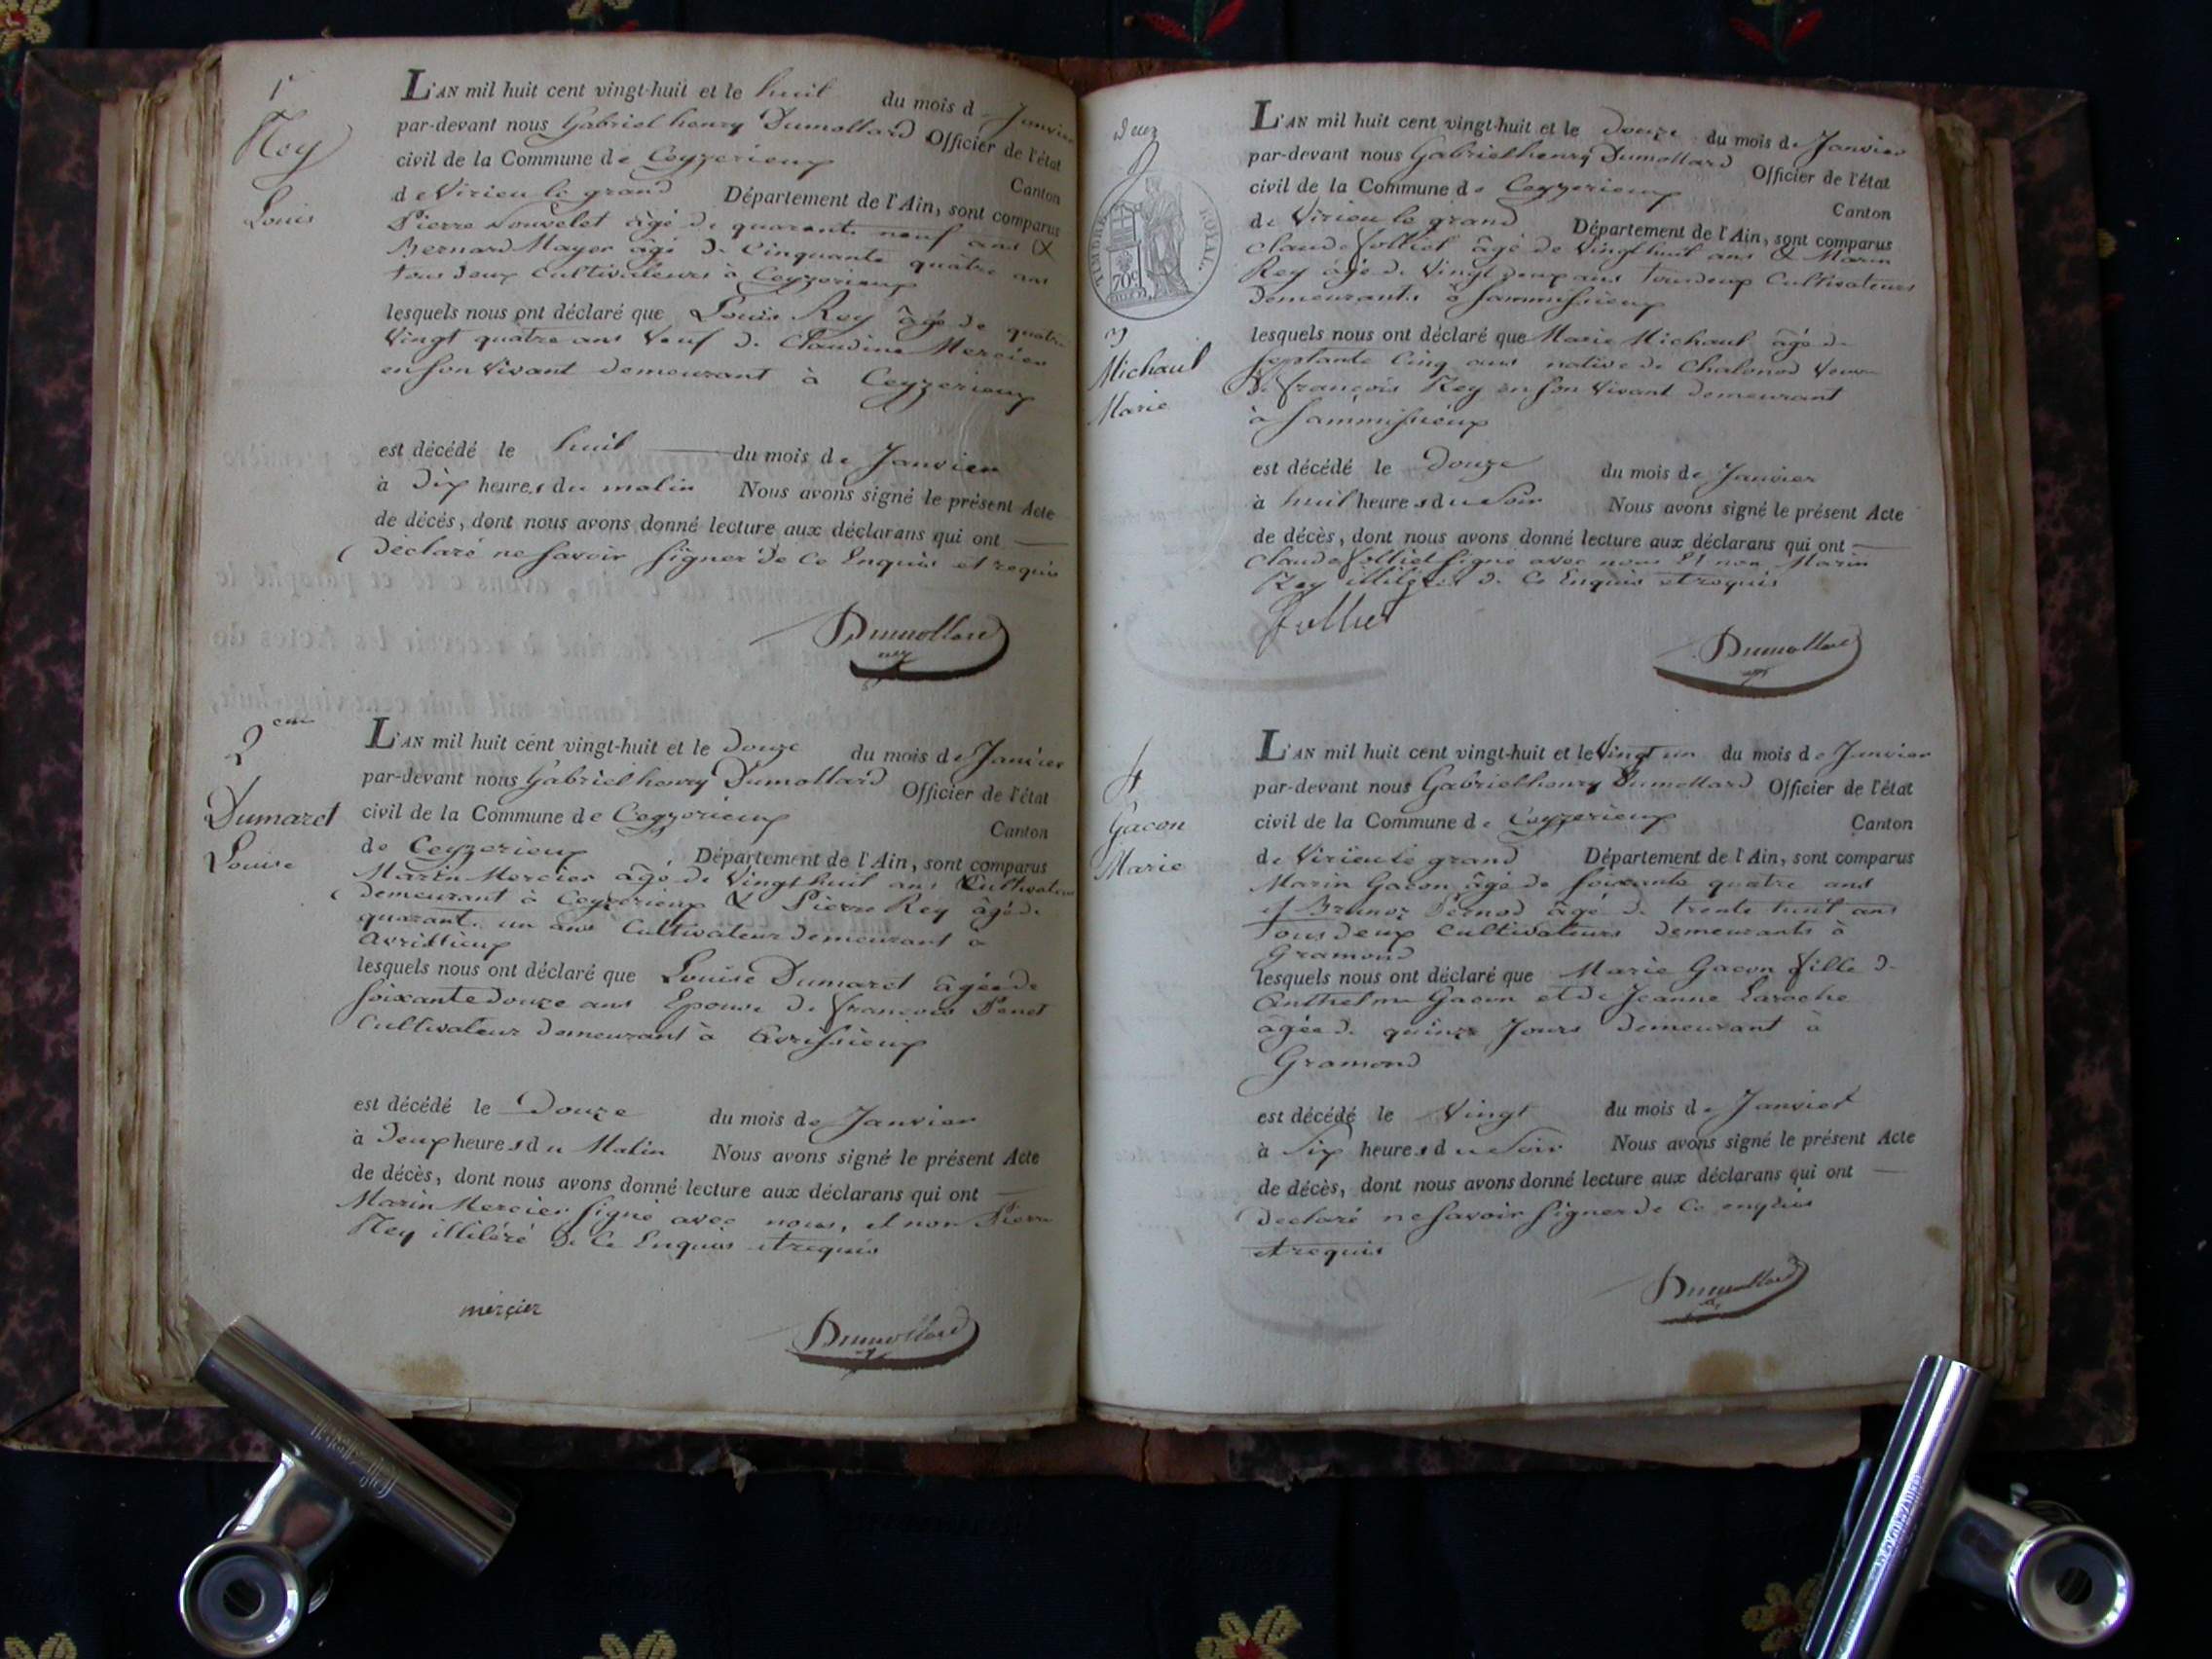 1r
Rey
Louis
L'AN mil huit cent vingt-huit et le huit du mois de Janvier
par-devant nous Gabriel henry Dumollard Officier de l'état
civil de la Commune de Ceyzerieux
Canton
de Virieu le grand Département de l'Ain, sont comparus
Pierre âgé de quarante neuf ans &
Bernard Mayer âgé de Cinquante quatre ans
tous deux Cultivateurs à Ceyzerieux
lesquels nous ont déclaré que Louis Rey âgé de quatre
Vingt quatre ans Veuf de Claudine Mercier
en son Vivant demeurant à Ceyzerieux
est décédé le huit du mois de Janvier
à Dix heures du matin Nous avons signé le présent Acte
de décès, dont nous avons donné lecture aux déclarans qui ont
déclaré ne savoir signer de Ce Enquis et requis
Dumollard
2eme
Dumaret
Louise
L'AN mil huit cent vingt-huit et le Douze du mois de Janvier
par-devant nous Gabriel henry Dumollard Officier de l'état
civil de la Commune de Ceyzerieux
Canton
de Ceyzerieux Département de l'Ain, sont comparus
Marin Mercier âgé de Vingt huit ans Cultivateur
demeurant à Ceyzerieux & Pierre Rey âgé de
quarante un ans Cultivateur demeurant à
Avrissieux
lesquels nous ont déclaré que Louise Dumaret âgée de
soixante douze ans Epouse de françois
Cultivateur demeurant à Avrissieux
est décédé le Douze du mois de Janvier
à Deux heures du Matin Nous avons signé le présent Acte
de décès, dont nous avons donné lecture aux déclarans qui ont
Marin Mercier signé avec nous, et non Pierre
Rey illiléré de Ce Enquis et requis
mercier
Dumollard
Deux
TIMBRE ROYAL
70c
3
Michaul
Marie
L'AN mil huit cent vingt-huit et le Douze du mois de Janvier
par-devant nous Gabriel henry Dumollard Officier de l'état
civil de la Commune de Ceyzerieux
Canton
de Virieu le grand Département de l'Ain, sont comparus
Claude Jolliet âgé de Vingt huit ans & Marin
Rey âgé de Vingt deux ans tous deux Cultivateurs
demeurants à Sammissieux
lesquels nous ont déclaré que Marie Michaul âgé de
septante Cinq ans native de Chalonod Veuve
de françois Rey en son Vivant demeurant
à Sammissieux
est décédé le Douze du mois de Janvier
à huit heures du Soir Nous avons signé le présent Acte
de décès, dont nous avons donné lecture aux déclarans qui ont
Claude Jolliet signé avec nous Et non Marin
Rey de Ce Enquis et requis
Jolliet
Dumollard
4
Gacon
Marie
L'AN mil huit cent vingt-huit et le Vingt un du mois de Janvier
par-devant nous Gabriel henry Dumollard Officier de l'état
civil de la Commune de Ceyzerieux
Canton
de Virieu le grand Département de l'Ain, sont comparus
Marin Gacon âgé de soixante quatre ans
et âgé de trente huit ans
tous deux Cultivateurs demeurants à
Gramond
lesquels nous ont déclaré que Marie Gacon fille de
Anthelme Gacon et de Jeanne Laroche
âgée de quinze Jours demeurant à
Gramond
est décédé le Vingt du mois de Janvier
à Six heures du Soir Nous avons signé le présent Acte
de décès, dont nous avons donné lecture aux déclarans qui ont
declaré ne savoir signer de Ce enquis
et requis
Dumollard